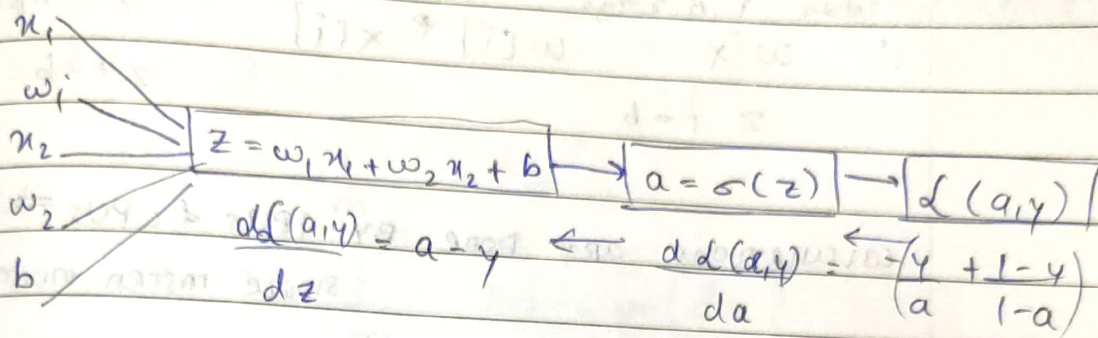 x₁
w₁
x₂
w₂
b
z = w₁ x₁ + w₂ x₂ + b → a = σ(z) → L(a,y)
dL(a,y)/dz = a - y ← dL(a,y)/da = ← -(y/a + 1-y/1-a)
w x w[i] * x[i]